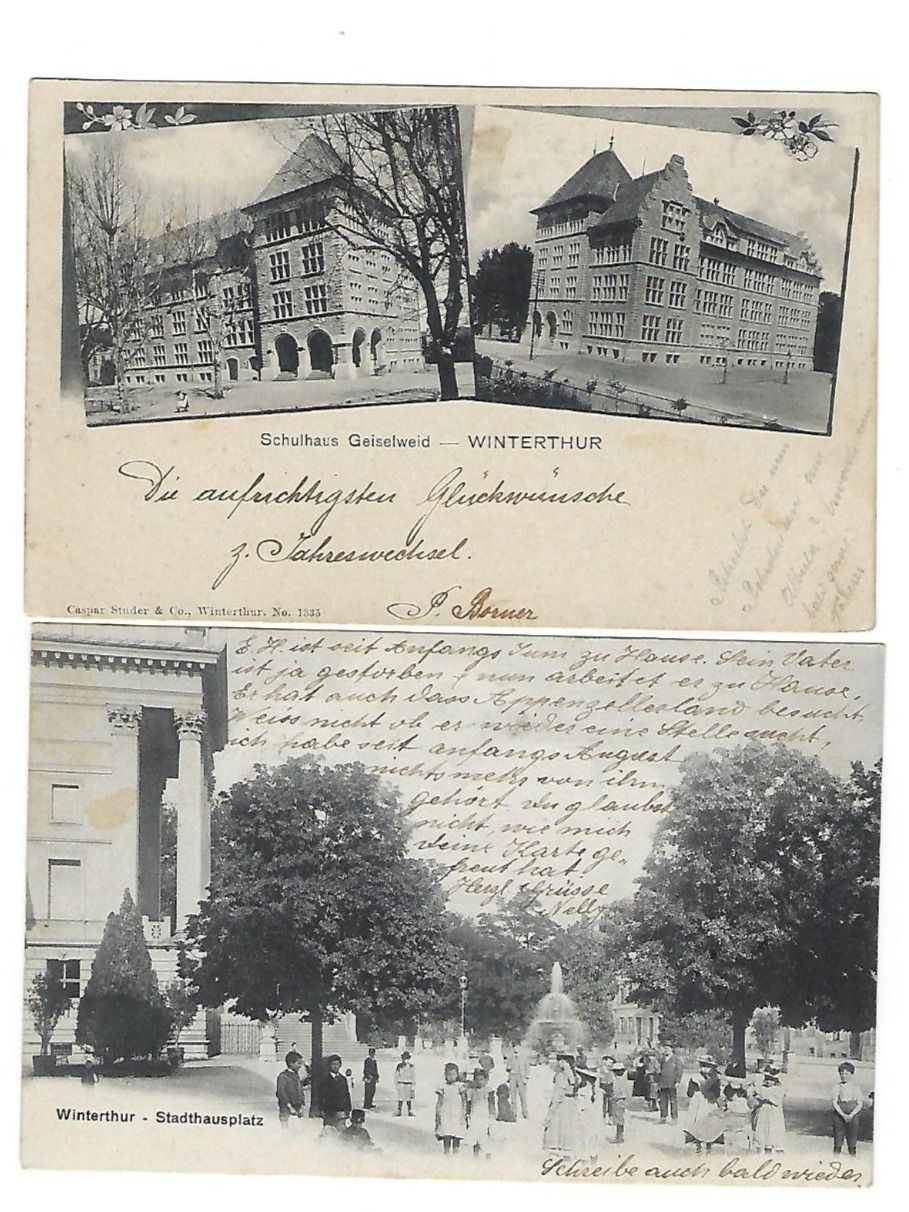 Schulhaus Geiselweid — WINTERTHUR
Die aufrichtigsten Glückwünsche
z. Jahreswechsel.
P. Borner
Caspar Studer & Co., Winterthur. No. 1335
Schreibe
E. H. ist seit Anfangs Juni zu Hause. Sein Vater
ist ja gestorben & nun arbeitet er zu Hause.
Er hat auch dass Appenzellerland besucht
Weiss nicht ob er wieder eine Stelle sucht,
ich habe seit anfangs August
nichts mehr von ihm
gehört. Du glaubst
nicht, wie mich
deine Karte ge-
freut hat
Herzl. Grüsse
Nelly
Winterthur - Stadthausplatz
Schreibe auch bald wieder.